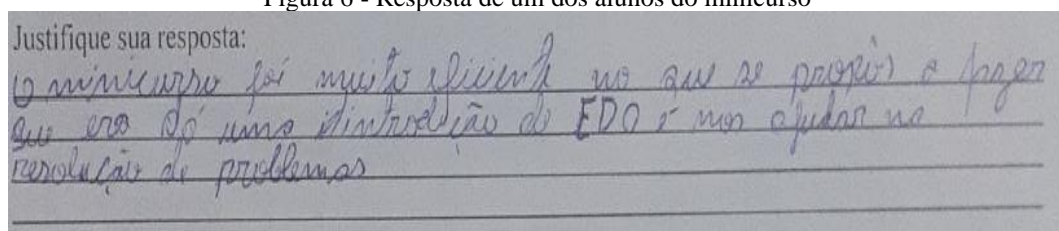 Figura 6 - Resposta de um dos alunos do minicurso
Justifique sua resposta:
O minicurso foi muito eficiente no que se propôs a fazer
que era dá uma introdução de EDO e nos ajudar na
resolução de problemas